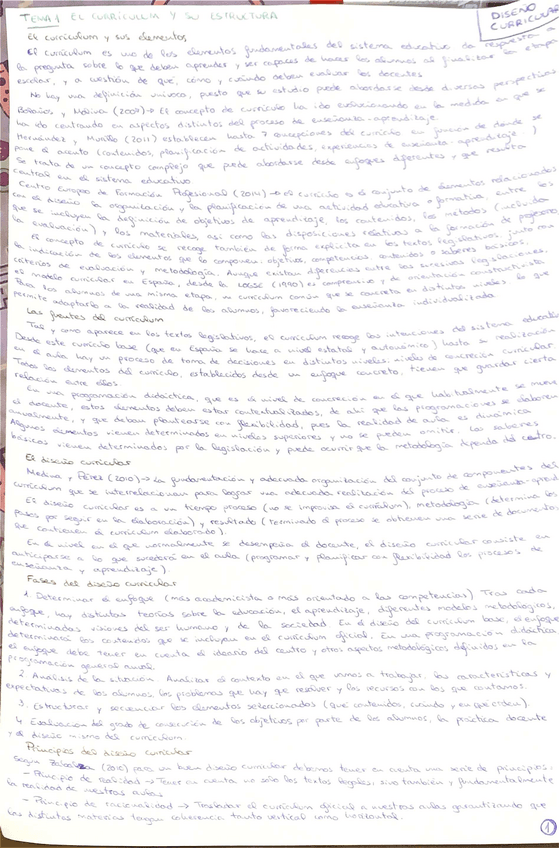 TEMA 1 EL CURRÍCULUM Y SU ESTRUCTURA
DISEÑO CURRICULAR
El currículum y sus elementos
El currículum es uno de los elementos fundamentales del sistema educativo da respuesta a
la pregunta sobre lo que deben aprender y ser capaces de hacer los alumnos al finalizar la etapa
escolar, y a cuestión de qué, cómo y cuándo deben evaluar los docentes
No hay una definición unívoca, puesto que su estudio puede abordarse desde diversas perspectivas
Bolaños y Molina (2007) → El concepto de currículo ha ido evolucionando en la medida en que se
ha ido centrando en aspectos distintos del proceso de enseñanza-aprendizaje.
Hernández y Murillo (2011) establecen hasta 7 concepciones del currículo en función de donde se
pone el acento (contenidos, planificación de actividades, experiencias de enseñanza-aprendizaje)
Se trata de un concepto complejo que puede abordarse desde enfoques diferentes y que resulta
central en el sistema educativo
Centro Europeo de Formación Profesional (2014) → el currículo es el conjunto de elementos relacionados
con el diseño la organización y la planificación de una actividad educativa o formativa, entre los
que se incluyen la definición de objetivos de aprendizaje, los contenidos, los métodos (incluida
la evaluación) y los materiales, así como las disposiciones relativas a la formación de profesores
El concepto de currículo se recoge también de forma explícita en los textos legislativos, junto con
la indicación de los elementos que lo componen: objetivos, competencias, contenidos o saberes básicos,
criterios de evaluación y metodología. Aunque existan diferencias entre las sucesivas legislaciones,
el modelo curricular en España, desde la LOGSE (1990) es comprensivo y de orientación constructivista
Para los alumnos de una misma etapa, un currículum común que se concreta en distintos niveles lo que
permite adaptarlo a la realidad de los alumnos, favoreciendo la enseñanza individualizada
Las fuentes del currículum
Tal y como aparece en los textos legislativos, el currículum recoge las intenciones del sistema educativo
Desde este currículo base (que en España se hace a nivel estatal y autonómico) hasta su realización
en el aula hay un proceso de toma de decisiones en distintos niveles: niveles de concreción curricular.
Todos los elementos del currículo, establecidos desde un enfoque concreto, tienen que guardar cierta
relación entre ellos.
En una programación didáctica, que es el nivel de concreción en el que habitualmente se mueve
el docente, estos elementos deben estar contextualizados, de ahí que las programaciones se elaboren
anualmente, y que deban plantearse con flexibilidad, pues la realidad de aula es dinámica
Algunos elementos vienen determinados en niveles superiores y no se pueden omitir. Los saberes
básicos vienen determinados por la legislación y puede ocurrir que la metodología dependa del centro.
El diseño curricular
Medina y Pérez (2010) → La fundamentación y adecuada organización del conjunto de componentes del
currículum que se interrelacionan para lograr una adecuada realización del proceso de enseñanza-aprend
El diseño curricular es a un tiempo proceso (no se improvisa el currículum), metodología (determina los
pasos por seguir en la elaboración) y resultado (terminado el proceso se obtienen una serie de documentos
que contienen el currículum elaborado).
En el nivel en el que normalmente se desempeña el docente, el diseño curricular consiste en
anticiparse a lo que sucederá en el aula (programar y planificar con flexibilidad los procesos de
enseñanza y aprendizaje).
Fases del diseño curricular
1. Determinar el enfoque (más academicista o más orientado a las competencias) Tras cada
enfoque, hay distintas teorías sobre la educación, el aprendizaje, diferentes modelos metodológicos,
determinadas visiones del ser humano y de la sociedad. En el diseño del currículum base, el enfoque
determinará los contenidos que se incluyen en el currículum oficial. En una programación didáctica,
el enfoque debe tener en cuenta el ideario del centro y otros aspectos metodológicos definidos en la
programación general anual.
2 Análisis de la situación. Analizar el contexto en el que vamos a trabajar, las características y
expectativas de los alumnos los problemas que hay que resolver y los recursos con los que contamos.
3. Estructurar y secuenciar los elementos seleccionados (qué contenidos, cuándo y en qué orden).
4 Evaluación del grado de consecución de los objetivos por parte de los alumnos, la práctica docente
y el diseño mismo del currículum.
Principios del diseño curricular
Según Zabalza (2010) para un buen diseño curricular debemos tener en cuenta una serie de principios:
- Principio de realidad → Tener en cuenta no sólo los textos legales, sino también y fundamentalmente
la realidad de nuestras aulas
- Principio de racionalidad → Trasladar el currículum oficial a nuestras aulas garantizando que
las distintas materias tengan coherencia tanto vertical como horizontal.
1